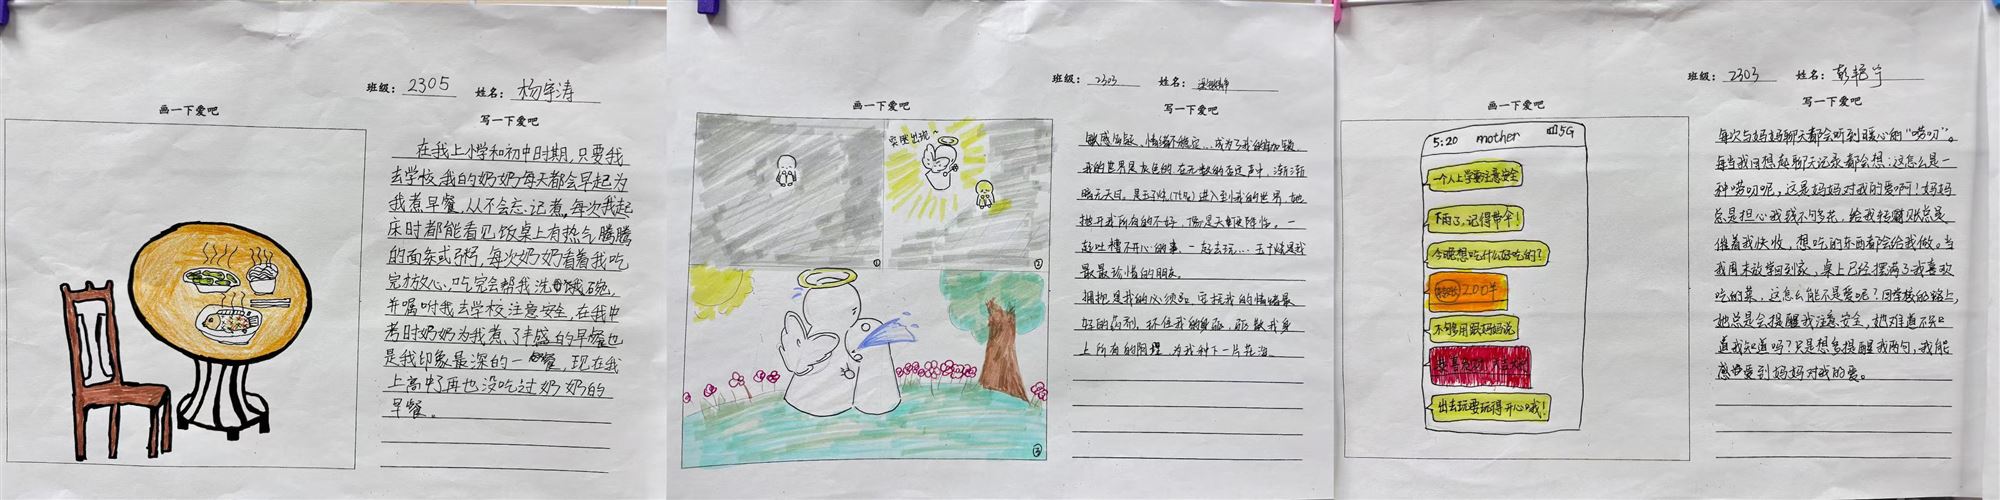 班级：2305 姓名：杨宇涛
画一下爱吧
写一下爱吧
在我上小学和初中时期，只要我
去学校我的奶奶每天都会早起为
我煮早餐，从不会忘记煮，每次我起
床时都能看见饭桌上有热气腾腾
的面条或粥，每次奶奶看着我吃
完才放心，吃完会帮我洗碗，
并嘱咐我去学校注意安全，在我中
考时奶奶为我煮了丰盛的早餐也
是我印象最深的一餐，现在我
上高中了再也没吃过奶奶的
早餐。
班级：2303 姓名：
画一下爱吧
写一下爱吧
突然出现~
①
②
③
敏感多疑，情绪不稳定…成为了我的
我的世界是灰色的，在无数的否定声中，渐渐
暗无天日。是(ta)进入到我的世界，她
抛开我所有的不好，像是天使降临。一
起吐槽不开心的事，一起去玩…是我
最最珍惜的朋友。
拥抱是我的必须品，安抚我的情绪最
好的药剂，环住我的，驱散我身
上所有的阴霾，为我种下一片花海。
班级：2303 姓名：彭艳宁
画一下爱吧
写一下爱吧
5:20 mother 5G
一个人上学要注意安全
下雨了，记得带伞！
今晚想吃什么好吃的？
转账 200半
不够用跟妈妈说
出去玩要玩得开心哦！
每次与妈妈聊天都会听到暖心的“唠叨”。
每当我回想起聊天记录都会想：这怎么是一
种唠叨呢，这是妈妈对我的爱啊！妈妈
总是担心我钱不够花，给我转账总是
催着我快收，想吃的东西都会给我做。当
我周末放学回到家，桌上已经摆满了我喜欢
吃的菜，这怎么能不是爱呢？回学校的路上，
她总是会提醒我注意安全，她难道不知
道我知道吗？只是想多提醒我两句，我能
感受到妈妈对我的爱。